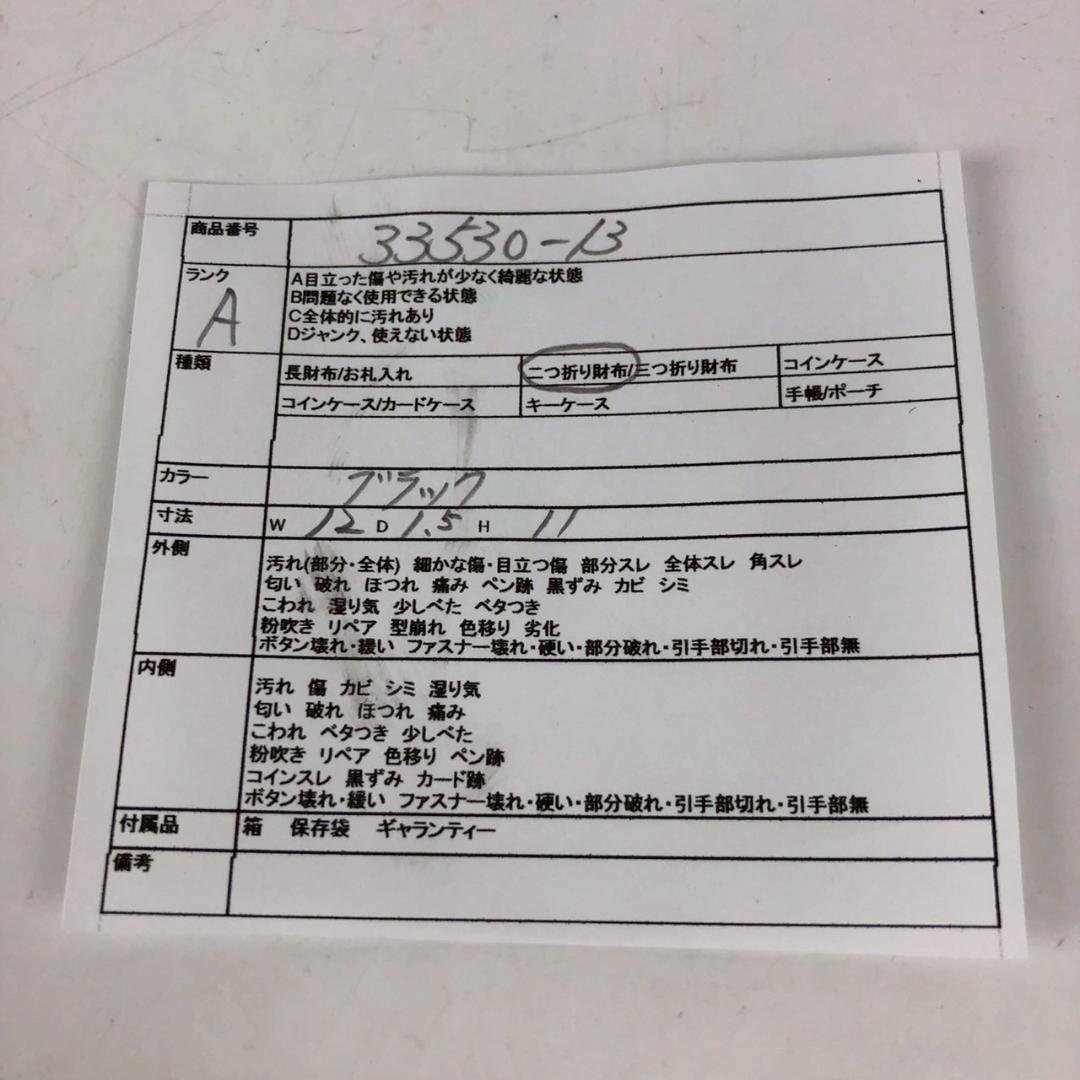 商品番号 33530-13
ランク A
A目立った傷や汚れが少なく綺麗な状態
B問題なく使用できる状態
C全体的に汚れあり
Dジャンク、使えない状態
種類
長財布/お札入れ 二つ折り財布/三つ折り財布 コインケース
コインケース/カードケース キーケース 手帳/ポーチ
カラー ブラック
寸法 W 12 D 1.5 H 11
外側
汚れ(部分・全体) 細かな傷・目立つ傷 部分スレ 全体スレ 角スレ
匂い 破れ ほつれ 痛み ペン跡 黒ずみ カビ シミ
こわれ 湿り気 少しべた ベタつき
粉吹き リペア 型崩れ 色移り 劣化
ボタン壊れ・緩い ファスナー壊れ・硬い・部分破れ・引手部切れ・引手部無
内側
汚れ 傷 カビ シミ 湿り気
匂い 破れ ほつれ 痛み
こわれ ベタつき 少しべた
粉吹き リペア 色移り ペン跡
コインスレ 黒ずみ カード跡
ボタン壊れ・緩い ファスナー壊れ・硬い・部分破れ・引手部切れ・引手部無
付属品 箱 保存袋 ギャランティー
備考